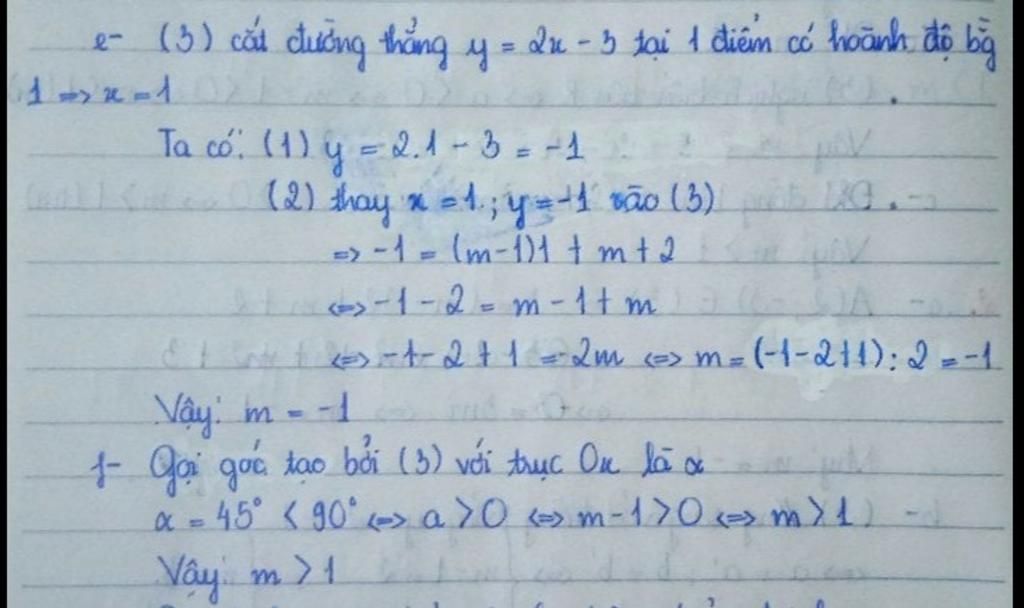 e- (3) cắt đường thẳng y = 2x - 3 tại 1 điểm có hoành độ bằg
1 => x = 1
Ta có: (1) y = 2.1 - 3 = -1
(2) thay x = 1 ; y = -1 vào (3)
=> -1 = (m-1)1 + m + 2
<=> -1 - 2 = m - 1 + m
<=> -1 - 2 + 1 = 2m <=> m = (-1-2+1) : 2 = -1
Vậy: m = -1
f- Gọi góc tạo bởi (3) với trục Ox là α
α = 45° < 90° <=> a > 0 <=> m-1 > 0 <=> m > 1
Vậy: m > 1